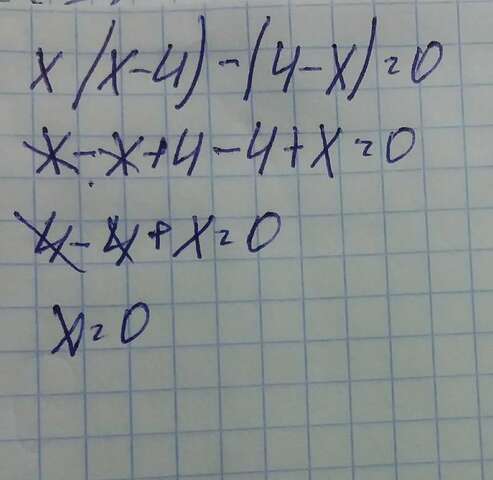 x(x-4)-(4-x)=0
x-x+4-4+x=0
4-4+x=0
x=0